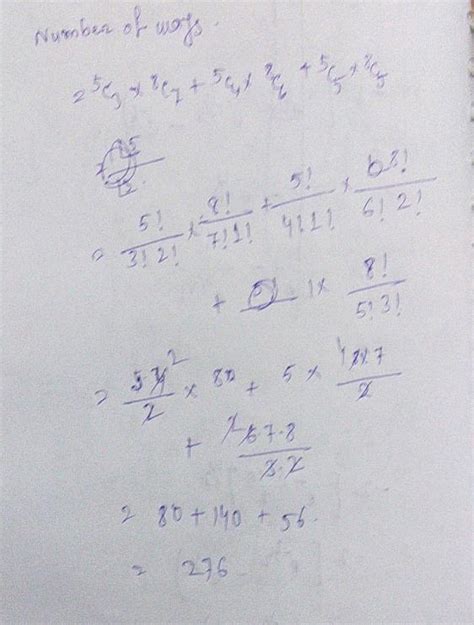 Number of ways.
= ⁵C₃ × ⁸C₇ + ⁵C₄ × ⁸C₆ + ⁵C₅ × ⁸C₅
= 5!/3! 2! × 8!/7! 1! + 5!/4! 1! × 8!/6! 2!
+ 1 × 8!/5! 3!
= 5·4²/2 × 8 + 5 × ⁴8·7/2
+ 6·7·8/3·2
= 80 + 140 + 56.
= 276